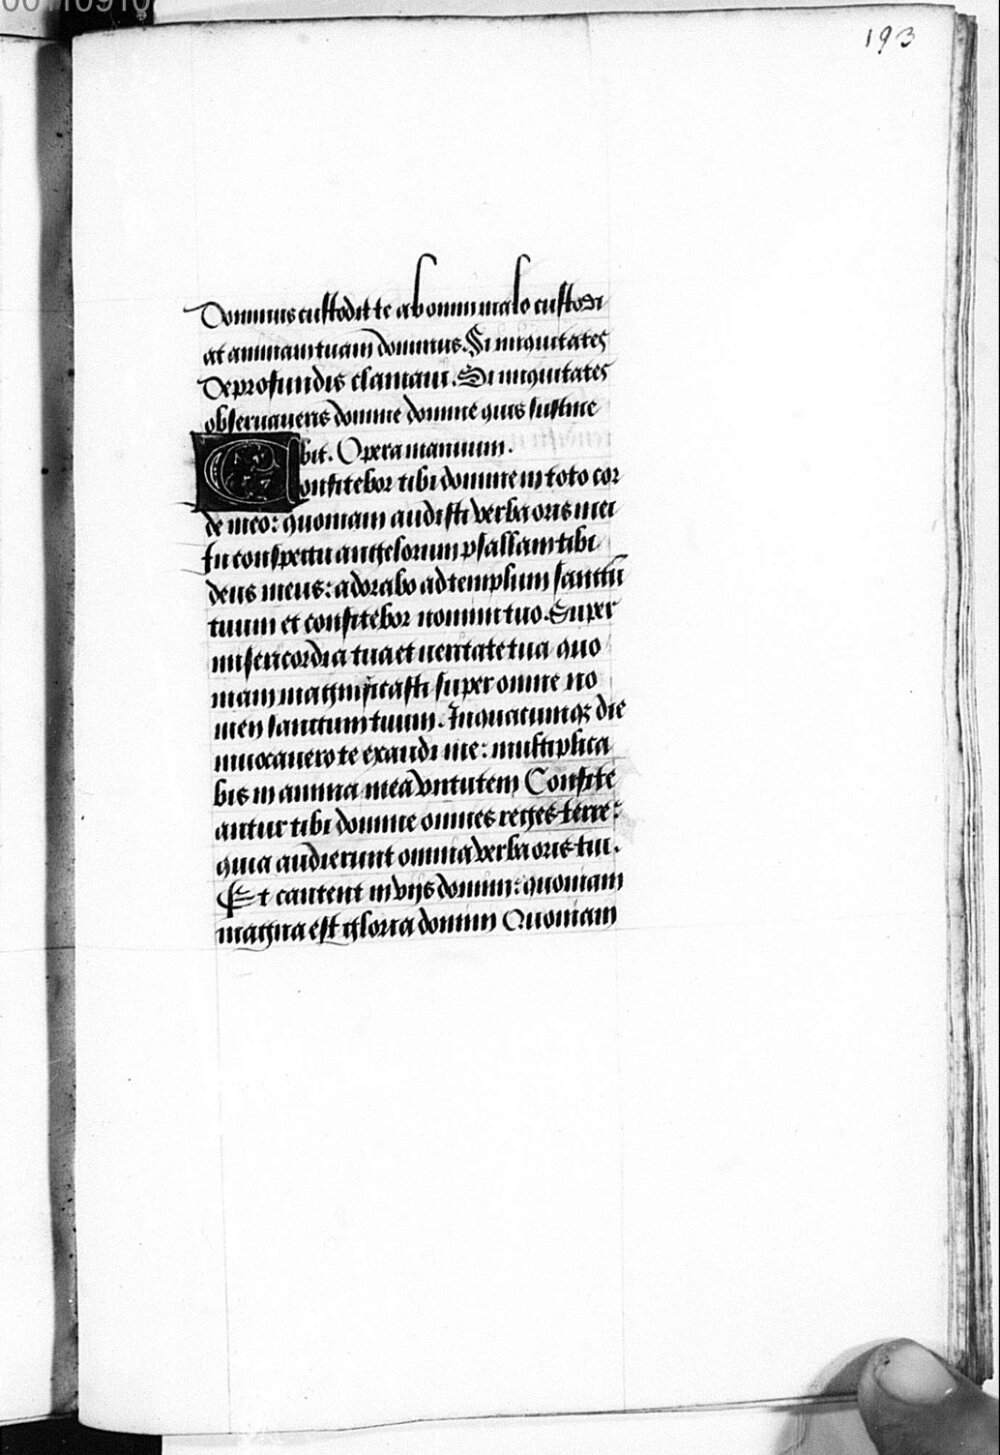 193
Dominus custodit te ab omni malo custodi
at animam tuam dominus. Si iniquitates
De profundis clamaui. Si iniquitates
obseruaueris domine domine quis sustine
bit. Opera manuum.
Confitebor tibi domine in toto cor
de meo: quoniam audisti verba oris mei
In conspectu angelorum psallam tibi
deus meus: adorabo ad templum sanctū
tuum et confitebor nomini tuo. Super
misericordia tua et ueritate tua quo
niam magnificasti super omne no
men sanctum tuum. In quacumqꝫ die
inuocauero te exaudi me: multiplica
bis in anima mea virtutem Confite
antur tibi domine omnes reges terre:
quia audierunt omnia verba oris tui.
Et cantent in vijs domini: quoniam
magna est gloria domini Quoniam